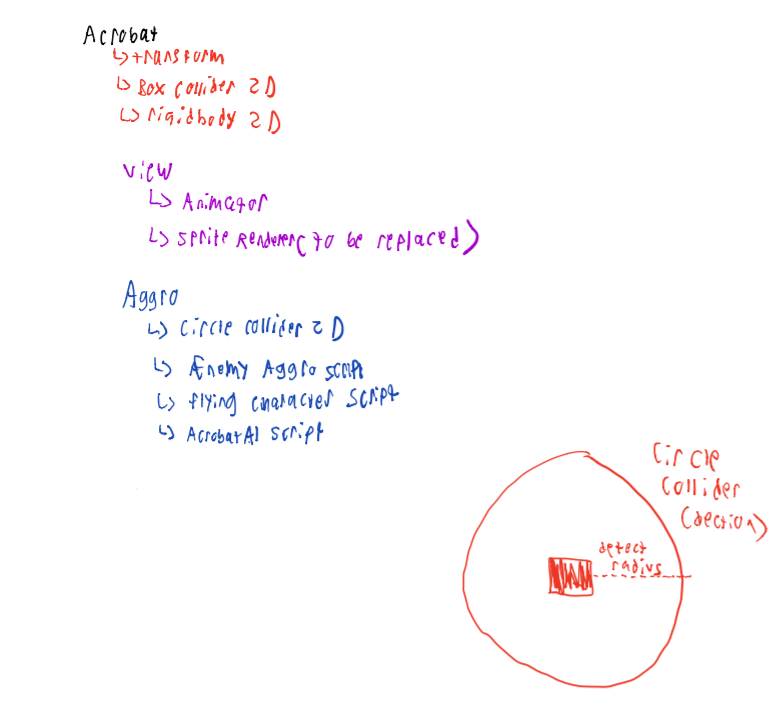 Acrobat
↳ transform
↳ Box Collider 2D
↳ rigidbody 2D
view
↳ Animator
↳ Sprite Renderer (to be replaced)
Aggro
↳ Circle collider 2D
↳ Enemy Aggro script
↳ flying character script
↳ AcrobatAI script
Circle
Collider
(dection)
detect
radius